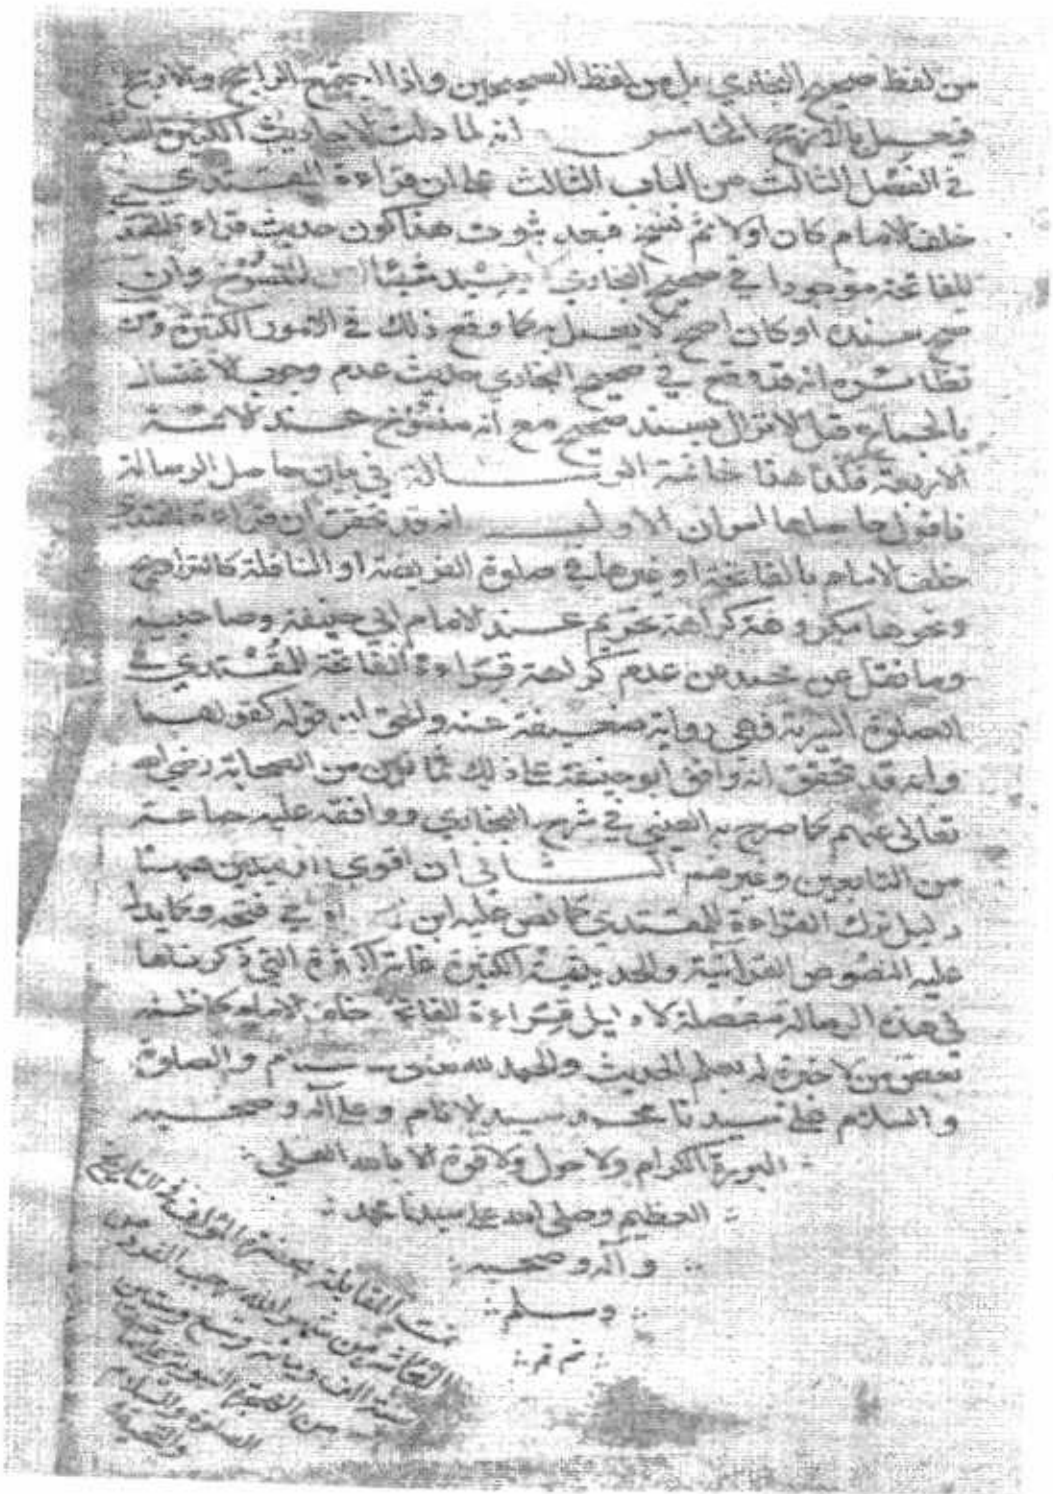 من لفظ صحيح البخاري بل من لفظ الصحيحين واذا اجتمع الراجح
فيعمل بالارجح الخامس انه لما دلت الاحاديث الكثيرة
في الفصل الثالث من الباب الثالث على ان قراءة المقتدي
خلف الامام كان اولا ثم نسخ فبعد ثبوت هذا كون حديث قراءة المقتدي
للفاتحة موجودا في صحيح البخاري لا يفيد شيئا المنسوخ وان
صح سنده او كان اصح لا يعمل به كما وقع ذلك في الامور الكثيرة ومن
نظائره انه قد وقع في صحيح البخاري حديث عدم وجوب الاغتسال
بالجماع قبل الانزال بسند صحيح مع انه منسوخ عند الائمة
الاربعة قلنا هذا خاتمة الرسالة في بيان حاصل الرسالة
فاقول حاصلها امران الاول انه قد تحقق ان قراءة المقتدي
خلف الامام بالفاتحة او غيرها في صلوة الفريضة او النافلة كالتراويح
ونحوها مكروهة كراهة تحريم عند الامام ابي حنيفة وصاحبيه
وما نقل عن محمد من عدم كراهة قراءة الفاتحة للمقتدي في
الصلوة السرية فهي رواية ضعيفة عنه والحق ان قوله كقولهما
وانه قد تحقق انه وافق ابو حنيفة على ذلك ثمانون من الصحابة رضي الله
تعالى عنهم كما صرح به العيني في شرح البخاري ووافقه عليه جماعة
من التابعين وغيرهم الثاني ان اقوى
دليل ترك القراءة للمقتدي كما نص عليه ابن في فتحه وكما يدل
عليه النصوص القرآنية والحديثية الكثيرة غاية الكثرة التي ذكرناها
في هذه الرسالة مفصلة لا دليل قراءة الفاتحة خلف الامام كما ظنه
بعض من لا خبرة له بعلم الحديث والحمد لله والصلوة
والسلام على سيدنا محمد سيد الانام وعلى آله وصحبه
البررة الكرام ولا حول ولا قوة الا بالله العلي
العظيم وصلى الله على سيدنا محمد
وآله وصحبه
وسلم
تم تم
تمت المقابلة بنسخة المؤلف في التاريخ
الثامن من شهر الله رجب الفرد من
سنة الف ومائة وتسع وستين
من الهجرة النبوية
الصلوة والسلام
والتحية